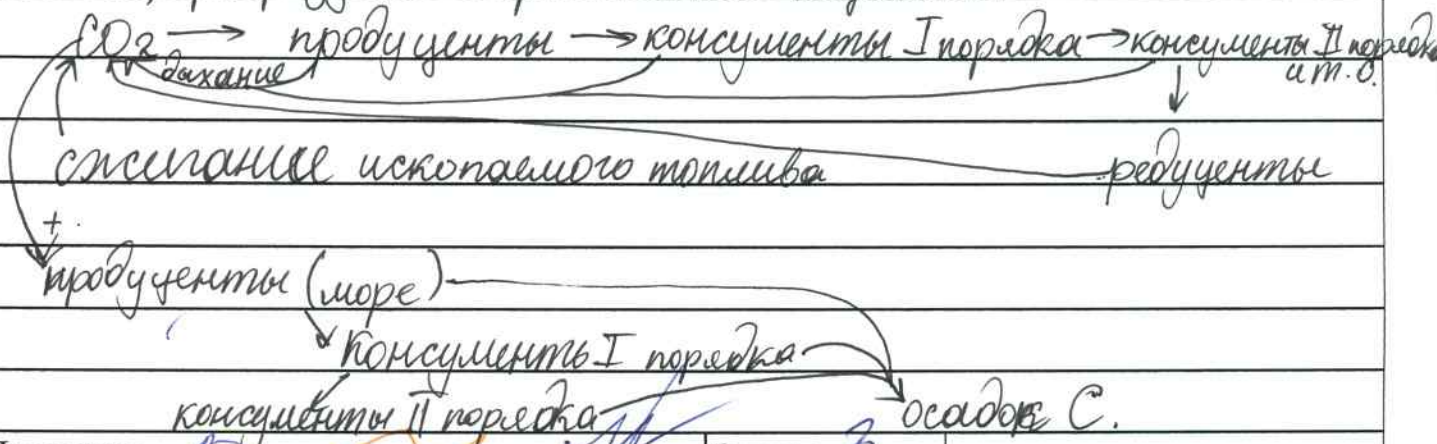 CO₂ → продуценты → консументы I порядка → консументы II порядка
дыхание
и т.д.
сжигание ископаемого топлива редуценты
+
продуценты (море)
Консументы I порядка
консументы II порядка осадок C.